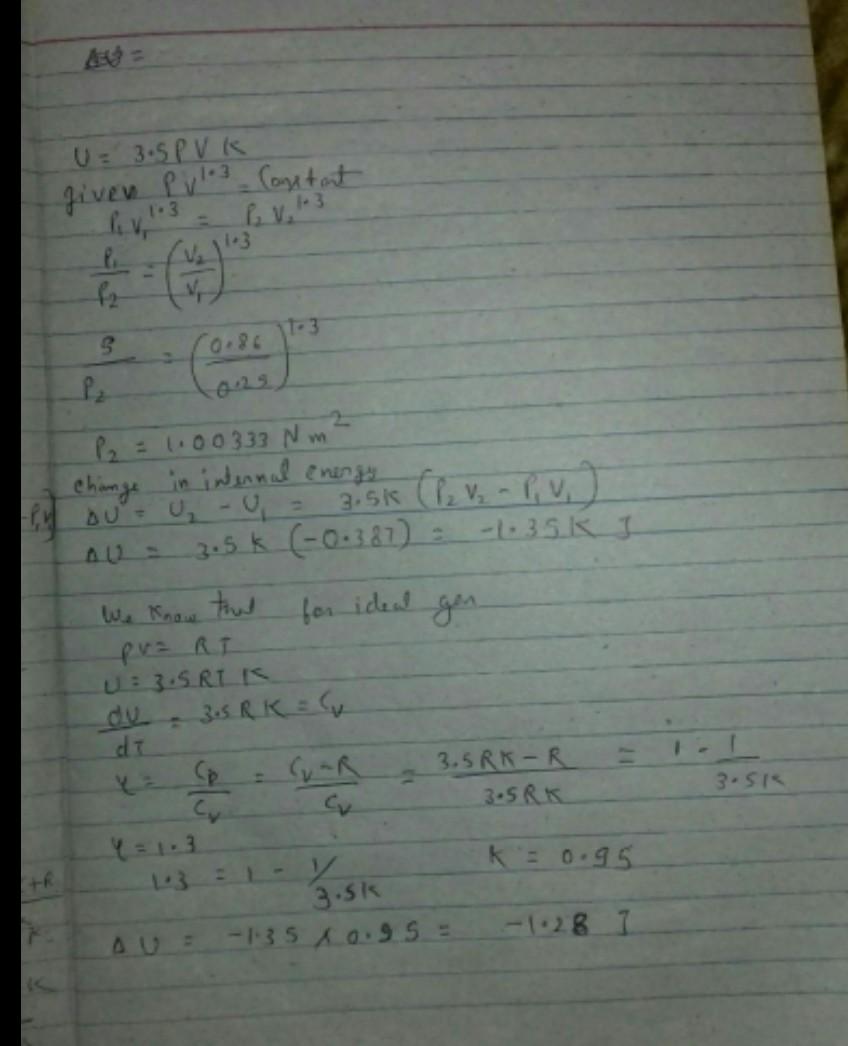 U = 3.5PV K
given PV^1.3 = Constant
P₁V₁^1.3 = P₂V₂^1.3
P₁/P₂ = (V₂/V₁)^1.3
5/P₂ = (0.86/0.25)^1.3
P₂ = 1.00333 N m²
change in internal energy
ΔU = U₂ - U₁ = 3.5K (P₂V₂ - P₁V₁)
ΔU = 3.5 K (-0.387) = -1.35K J
We know that for ideal gas
PV = RT
U = 3.5RT K
dU/dT = 3.5 R K = Cv
γ = Cp/Cv = Cv-R/Cv = 3.5RK-R/3.5RK = 1 - 1/3.5K
γ = 1.3
1.3 = 1 - 1/3.5K K = 0.95
ΔU = -1.35 × 0.95 = -1.28 J